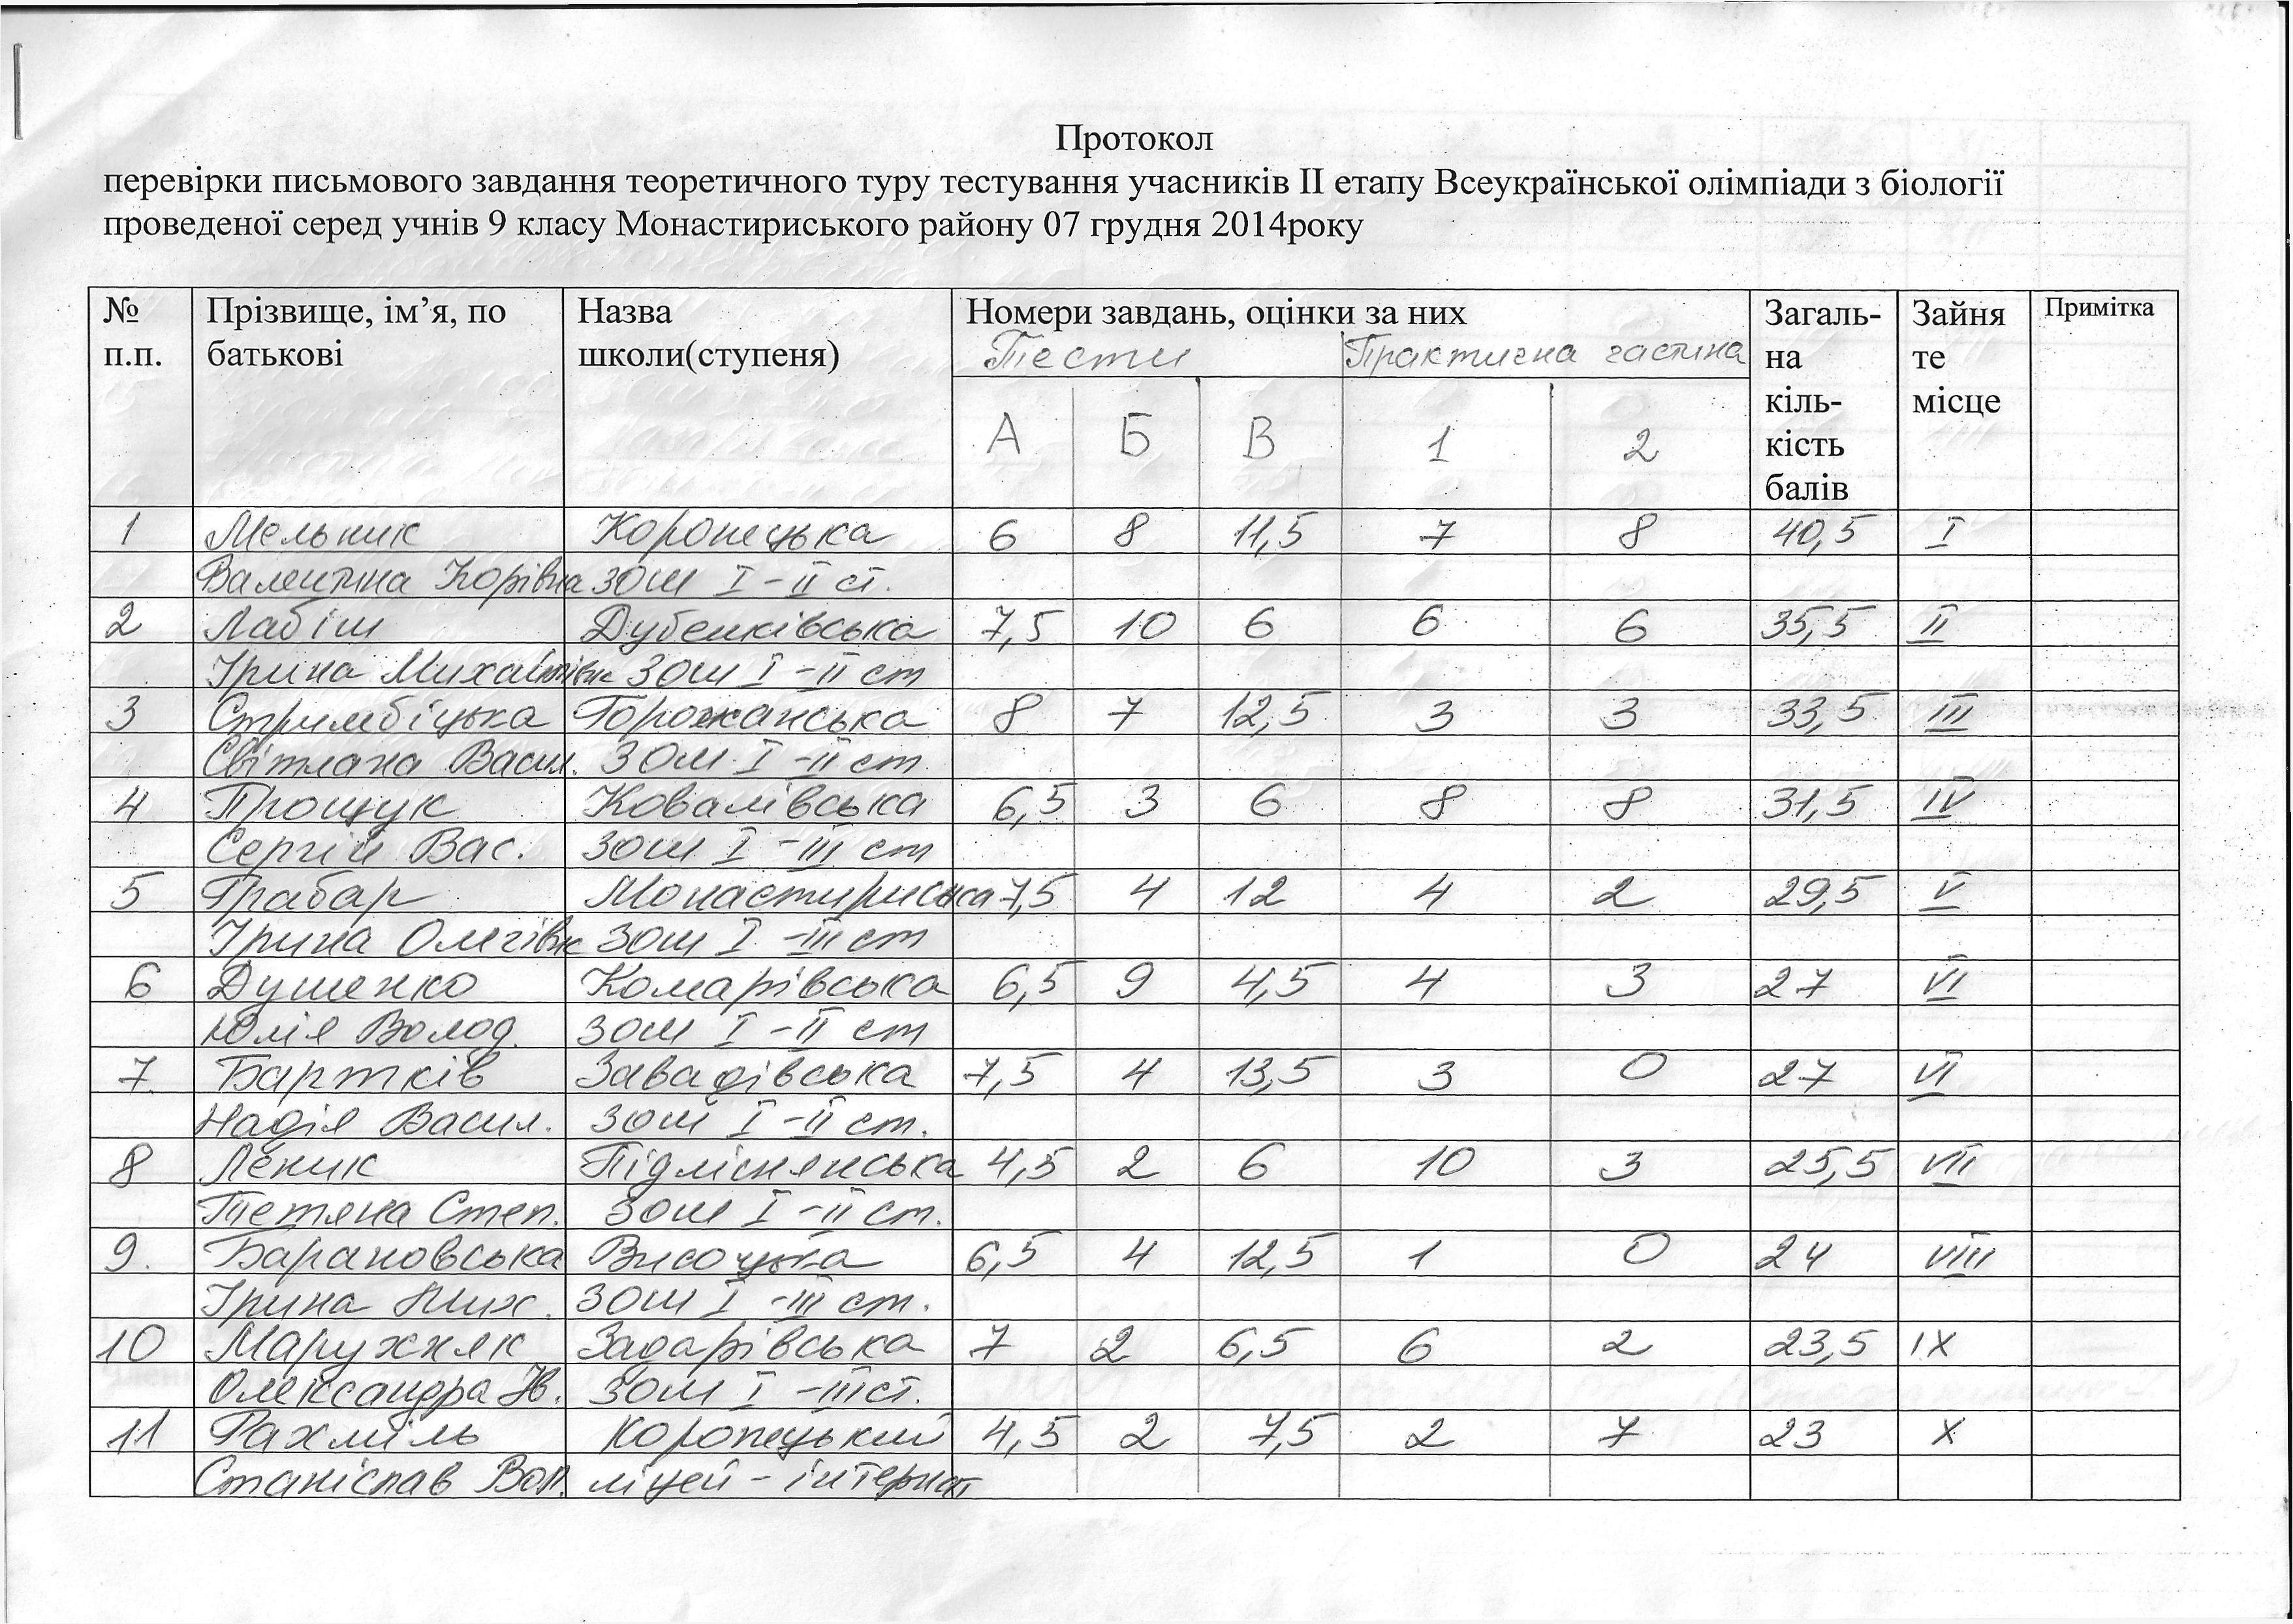 Протокол
перевірки письмового завдання теоретичного туру тестування учасників II етапу Всеукраїнської олімпіади з біології
проведеної серед учнів 9 класу Монастириського району 07 грудня 2014року
№ п.п. Прізвище, ім’я, по батькові Назва школи(ступеня) Номери завдань, оцінки за них Загаль-на кіль-кість балів Зайня те місце Примітка
Тести Практична частина
А Б В 1 2
1 Мельник Коропецька 6 8 11,5 7 8 40,5 I
Валентина Юріївна ЗОШ I-II ст.
2 Лабіш Дубенківська 7,5 10 6 6 6 35,5 II
Ірина Михайлівна ЗОШ I-II ст
3 Стримбіцька Горожанська 8 7 12,5 3 3 33,5 III
Світлана Васил. ЗОШ I-II ст
4 Прощук Ковалівська 6,5 3 6 8 8 31,5 IV
Сергій Вас. ЗОШ I-III ст
5 Грабар Монастириська 7,5 4 12 4 2 29,5 V
Ірина Олегівна ЗОШ I-III ст
6 Душенко Комарівська 6,5 9 4,5 4 3 27 VI
Юлія Волод. ЗОШ I-II ст
7. Бартків Завадівська 7,5 4 13,5 3 0 27 VI
Надія Васил. ЗОШ I-II ст.
8 Леник Підліснянська 4,5 2 6 10 3 25,5 VII
Тетяна Степ. ЗОШ I-II ст.
9. Барановська Височцька 6,5 4 12,5 1 0 24 VIII
Ірина Мих. ЗОШ I-III ст.
10 Маружняк Задарівська 7 2 6,5 6 2 23,5 IX
Олександра Ів. ЗОШ I-III ст.
11 Рахміль Коропецький 4,5 2 7,5 2 7 23 X
Станіслав Вол. ліцей-інтернат